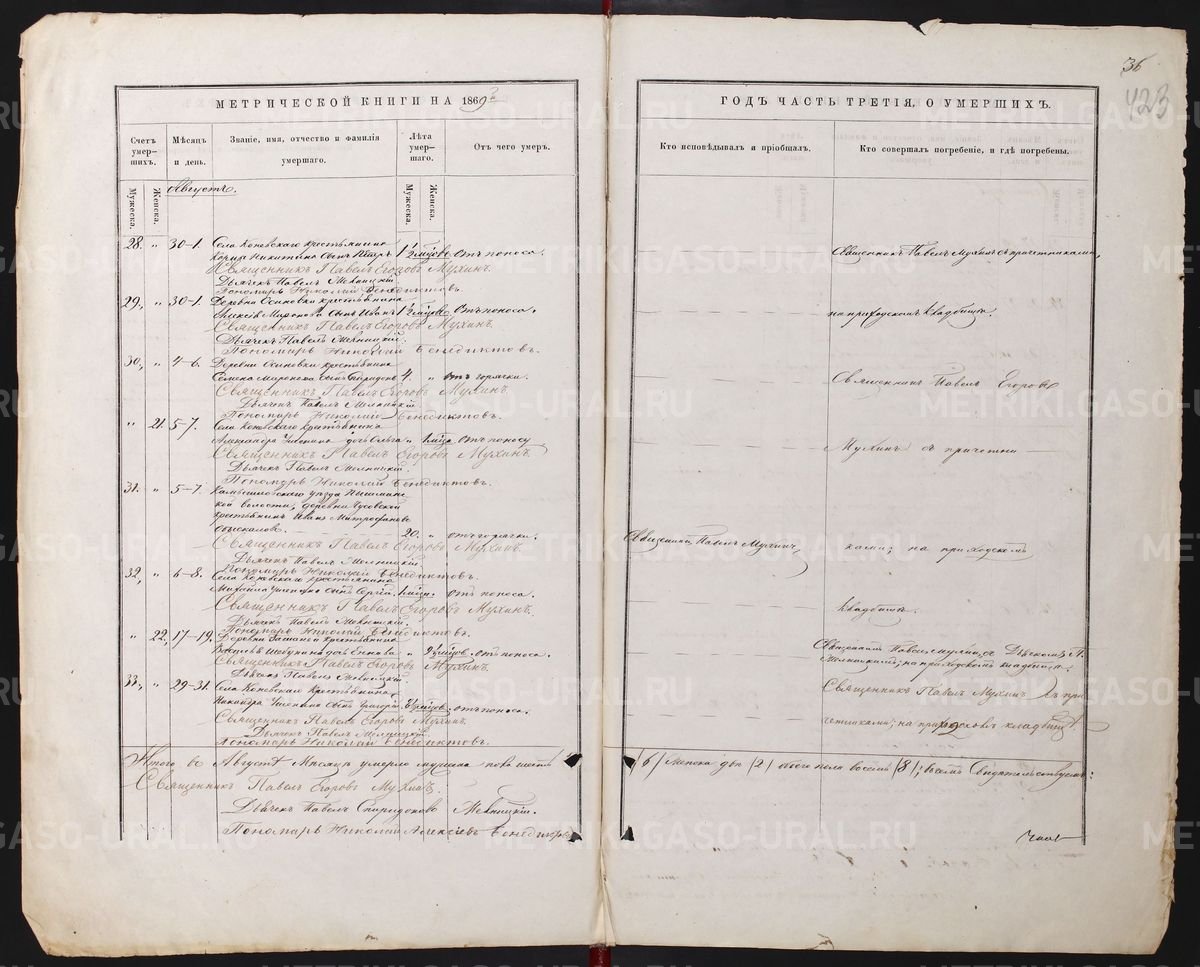 36
423
МЕТРИЧЕСКОЙ КНИГИ НА 1869
ГОДЪ ЧАСТЬ ТРЕТІЯ, О УМЕРШИХЪ.
Счетъ умер-шихъ.
Мѣсяцъ и день.
Званіе, имя, отчество и фамилія умершаго.
Лѣта умер-шаго.
Отъ чего умеръ.
Кто исповѣдывалъ и пріобщалъ.
Кто совершалъ погребеніе, и гдѣ погребены.
Мужеска.
Женска.
Мужеска.
Женска.
Августъ.
28. " 30-1. Села Коневскаго крестьянина
Никитина сынъ Петръ 1½ мѣсяцовъ отъ поноса.
Священникъ Павелъ Мухинъ съ причетниками,
Священникъ Павелъ Егоровъ Мухинъ.
Дьячекъ Павелъ Мелницкій.
Пономарь Николай Бенедиктовъ.
29, " 30-1. Деревни Осиновки крестьянина
Алексѣя Миронова сынъ Иванъ 1½ мѣсяцовъ отъ поноса.
на приходскомъ кладбищѣ.
Священникъ Павелъ Егоровъ Мухинъ.
Дьячекъ Павелъ Мелницкій.
Пономарь Николай Бенедиктовъ.
30, " 4-6. Деревни Осиновки крестьянина
Семена Миронова сынъ Спиридонъ 4. " отъ горячки.
Священникъ Павелъ Егоровъ
Священникъ Павелъ Егоровъ Мухинъ.
Дьячекъ Павелъ Мелницкій
Пономарь Николай Бенедиктовъ.
" 21. 5-7. Села Коневскаго крестьянина
Александра Ушенина дочь Ольга " отъ поносу
Мухинъ съ причетни
Священникъ Павелъ Егоровъ Мухинъ
Дьячекъ Павелъ Мелницкій.
Пономарь Николай Бенедиктовъ.
31. " 5-7. Камышловскаго уѣзда Пышмин-
ской волости, деревни Чусовской
крестьянинъ Иванъ Митрофановъ
20. " отъ горячки.
Священникъ Павелъ Мухинъ,
ками; на приходскомъ
Священникъ Павелъ Егоровъ Мухинъ.
Дьячекъ Павелъ Мелницкій
Пономарь Николай Бенедиктовъ.
32, " 6-8. Села Коневскаго крестьянина
Михаила Ушенина сынъ Сергій отъ поноса.
кладбищѣ.
Священникъ Павелъ Егоровъ Мухинъ.
Дьячекъ Павелъ Мелницкій.
Пономарь Николай Бенедиктовъ.
" 22, 17-19. Деревни крестьянина
дочь " мѣсяцовъ отъ поноса.
Священникъ Павелъ Мухинъ съ Дьячкомъ П.
Мелницкимъ; на приходскомъ кладбищѣ;
Священникъ Павелъ Егоровъ Мухинъ.
Дьячекъ Павелъ Мелницкій
33, " 29-31. Села Коневскаго крестьянина
Никанора Ушенина сынъ Григорій мѣсяцовъ отъ поноса.
Священникъ Павелъ Мухинъ съ при
четниками; на приходскомъ кладбищѣ.
Священникъ Павелъ Егоровъ Мухинъ.
Дьячекъ Павелъ Мелницкій
Пономарь Николай Бенедиктовъ.
Итого въ Августѣ мѣсяцѣ умерло мужеска пола шесть /6/ женска двѣ /2/ обоего пола восемь /8/; въ чемъ свидѣтельствуемъ:
Священникъ Павелъ Егоровъ Мухинъ.
Дьячекъ Павелъ Спиридоновъ Мелницкій.
Пономарь Николай Алексѣевъ Бенедиктовъ
METRIKI.GASO-URAL.RU